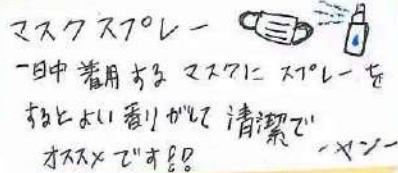 マスクスプレー
一日中着用するマスクにスプレーを
するとよい香りがして清潔で
オススメです!!
-ヤン-